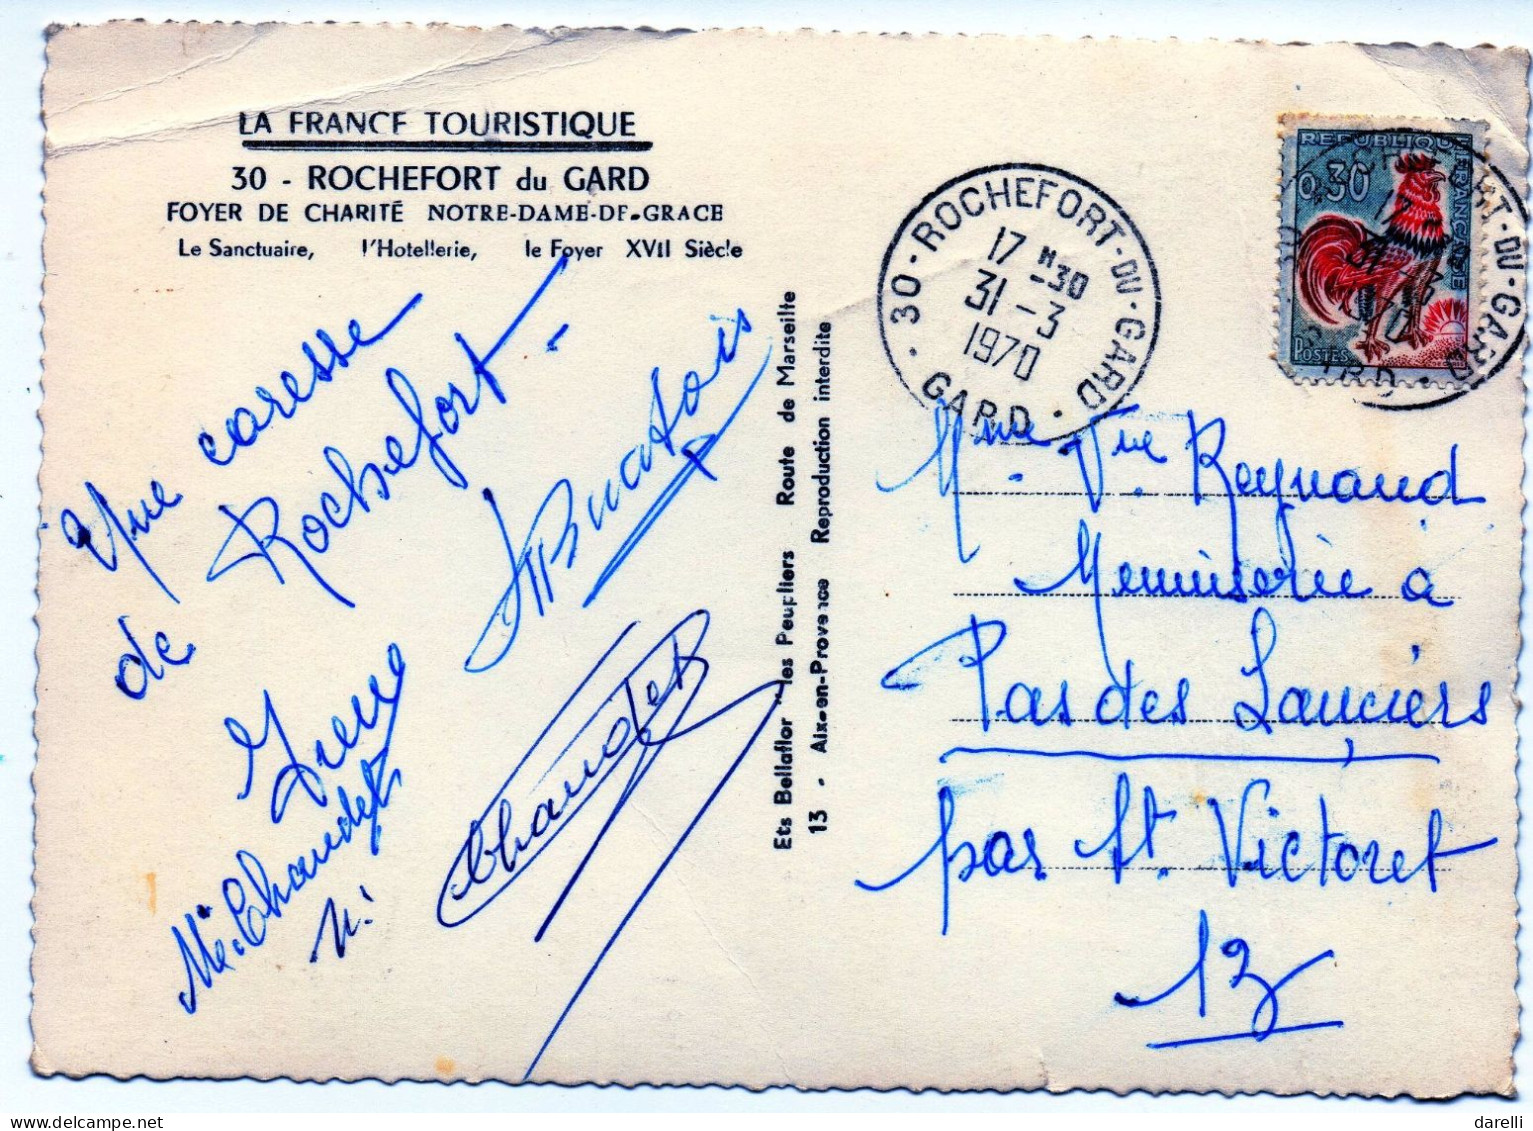 LA FRANCE TOURISTIQUE
30 - ROCHEFORT du GARD
FOYER DE CHARITÉ NOTRE-DAME-DE-GRACE
Le Sanctuaire, l'Hotellerie, le Foyer XVII Siècle
Une caresse
de Rochefort -
Chaudet
Ets Bellaflor "les Peupliers Route de Marseille
13 - Aix-en-Provence Reproduction interdite
30 - ROCHEFORT-DU-GARD
17 H -30
31 - 3
1970
GARD
REPUBLIQUE FRANÇAISE
0,30
POSTES
Mme Vve Reynaud
Menuiserie à
Pas des Lanciers
par St. Victoret
13
darelli